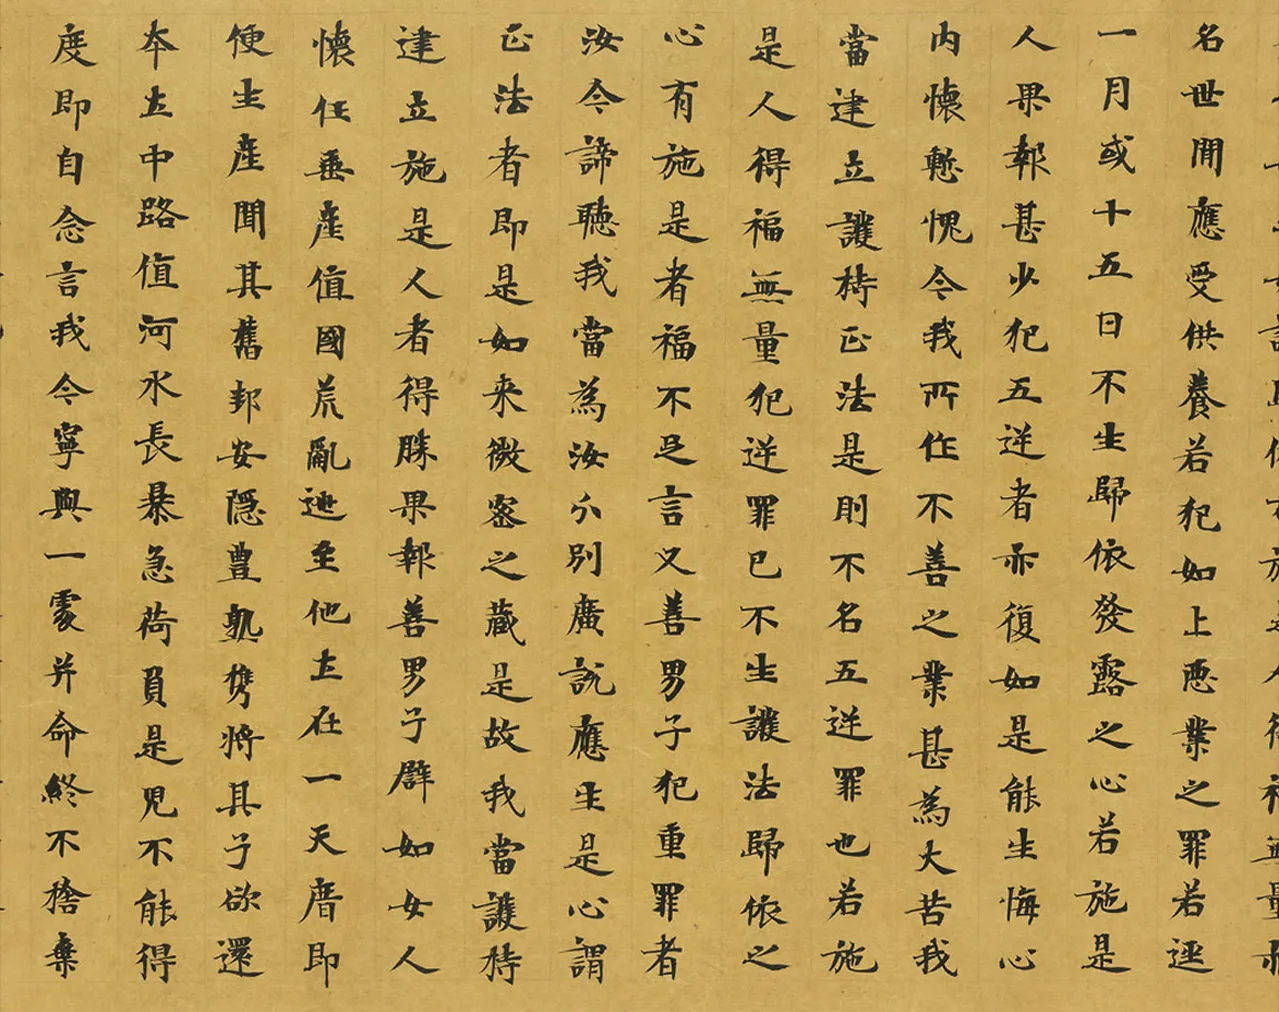 名世間應受供養若犯如上惡業之罪若逕
一月或十五日不生歸依發露之心若施是
人果報甚少犯五逆者亦復如是能生悔心
內懷慙愧今我所作不善之業甚為大苦我
當建立護持正法是則不名五逆罪也若施
是人得福無量犯逆罪已不生護法歸依之
心有施是者福不足言又善男子犯重罪者
汝今諦聽我當為汝分別廣說應生是心謂
正法者即是如来微密之藏是故我當護持
建立施是人者得勝果報善男子譬如女人
懷任垂產值國荒亂逃至他土在一天廟即
便生產聞其舊邦安隱豐熟携將其子欲還
本土中路值河水長暴急荷負是兒不能得
度即自念言我今寧與一處并命終不捨棄